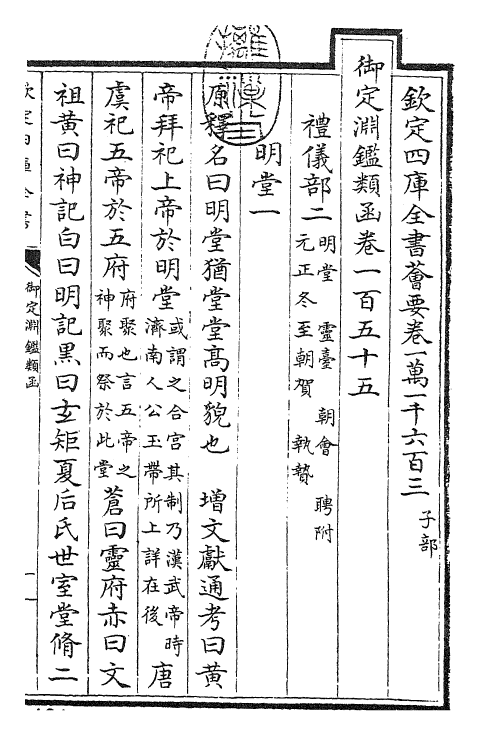 欽定四庫全書薈要卷一萬一千六百三 子部
御定淵鑑類函卷一百五十五
禮儀部二 明堂 靈臺 朝會 聘附
元正冬至朝賀 執贄
明堂一
原釋名曰明堂猶堂堂髙明貌也 增文獻通考曰黃
帝拜祀上帝於明堂 或謂之合宫其制乃漢武帝時
濟南人公玉帶所上詳在後 唐
虞祀五帝於五府 府聚也言五帝之
神聚而祭於此堂 蒼曰靈府赤曰文
祖黃曰神記白曰明記黑曰玄矩夏后氏世室堂脩二
御定淵鑑類函
一